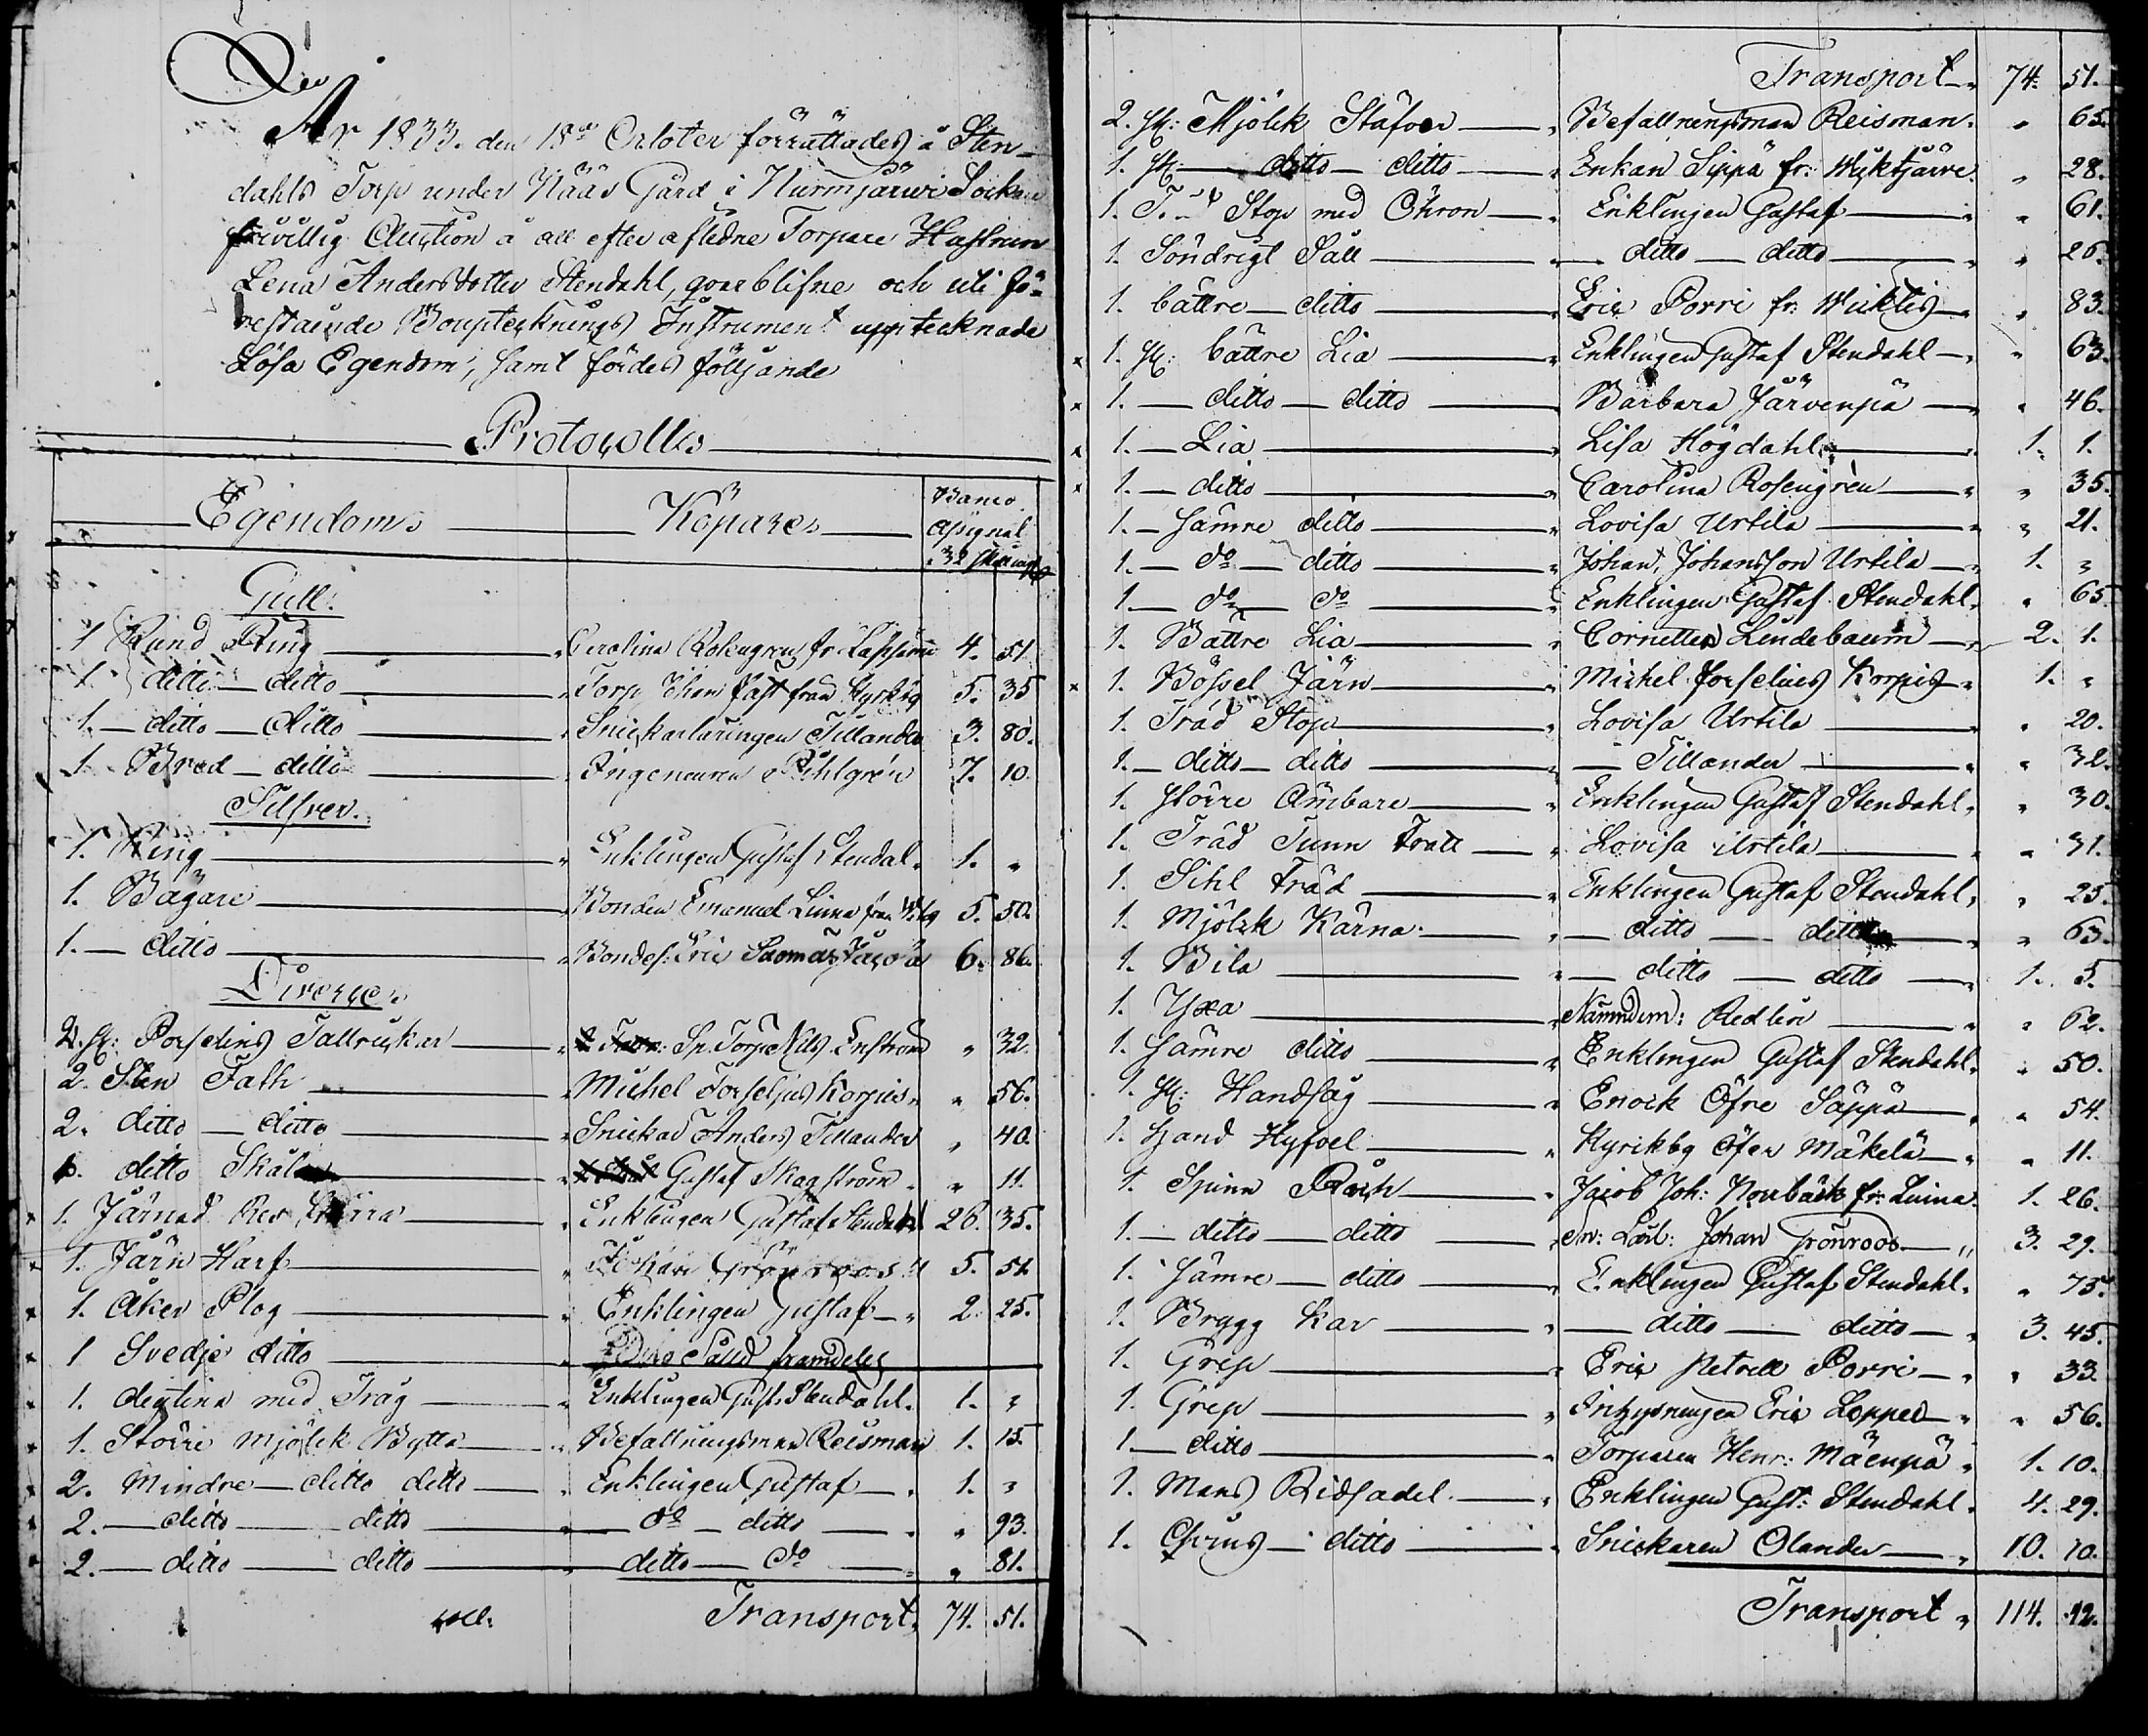 År 1833. den 18de October förrättades å Sten-
dahls Torp under Nääs Gård i Nurmijärvi Socken
frivillig Auction å all efter aflidne Torpare Hustrun
Lena Andersdotter Stendahl, qvarblifne och uti fö-
restående Boupteknings Instrument upptecknade
Lösa Egendom, samt fördes följande
Protocoll
Egendom Köpare Banco Assignat.
32 skilling
Gull.
1 Rund Ring Carolina Rosengren fr. 4. 51.
1. ditto ditto Torp. Johan från Kyrkby 5. 35
1. ditto ditto Snickarläringen Tillander 3. 80.
1. Bred ditto Ingeneuren Pihlgrén 7. 10.
Silfver.
1. Ring Enklingen Gustaf Stendal 1. "
1. Bägare Bonden Emanuel Linna från 5. 50.
1. ditto Bondes: Eric 6. 86.
Diverse
2. st: Porselins Tallrickar Sn. Torp. Nils Enström " 32.
2. Sten Fath Michel Forselius Korpis " 56.
2. ditto ditto Snickar Anders Tillander " 40.
1. ditto Skål Gustaf Skogström " 11.
1. Järnad Res Enklingen Gustaf Stendahl 26. 35.
1. Järn Harf Johan Grönroos 5. 51.
1. Åker Plog Enklingen Gustaf 2. 25.
1 Svedje ditto Såld framdeles
1. degtina med Tråg Enklingen Gust. Stendahl. 1. "
1. Större Mjölk Bytta Befallningsman Reisman 1. 15.
2. Mindre ditto ditto Enklingen Gustaf 1. "
2. ditto ditto do ditto " 93.
2. ditto ditto ditto do " 81.
Transport 74. 51.
Transport 74. 51.
2. st: Mjölk Stäfvor Befallningsman Reisman " 65.
1. st: ditto ditto Enkan Sippä fr. " 28.
1. Stop med Öhron Enklingen Gustaf " 61.
1. Söndrigt Såll ditto ditto " 26.
1. bättre ditto Eric Porri fr: " 83.
1. st: bättre Lia Enklingen Gustaf Stendahl " 63.
1. ditto ditto Barbara Järvenpä " 46.
1. Lia Lisa Högdahl 1. 1.
1. ditto Carolina Rosengrén " 35.
1. sämre ditto Lovisa Urtila " 21.
1. do ditto Johan Johansson Urtila 1. "
1. do do Enklingen Gustaf Stendahl " 65.
1. Bättre Lia Cornetten Lindebaum 2. 1.
1. Bössel Järn Michel Forselius Korpis 1. "
1. Träd Stop Lovisa Urtila " 20.
1. ditto ditto Tillander " 32.
1. större Ämbare Enklingen Gustaf Stendahl " 30.
1. Träd Tunn Tratt Lovisa Urtila " 31.
1. Sihl träd Enklingen Gustaf Stendahl " 25.
1. Mjölck Kärna ditto ditto " 63.
1. Bila ditto ditto 1. 5.
1. Yxa Nämndem: Redlin " 62.
1. sämre ditto Enklingen Gustaf Stendahl " 50.
1. st: Handsåg Enock Öfre Säppä " 54.
1. Hand Hyfvel Kyrkby Öfver Mäkelä " 11.
1. Spinn Råck Jacob Joh: Norrbäck fr: Linna 1. 26.
1. ditto ditto Sn: Lärl: Johan Grönroos 3. 29.
1. sämre ditto Enklingen Gustaf Stendahl " 75.
1. Brygg Kar ditto ditto 3. 45.
1. Grep Eric Petrell Porri " 33.
1. Grep Inhysningen Eric " 56.
1. ditto Torparen Henr: Mäenpä 1. 10.
1. Mans Ridsadel Enklingen Gust: Stendahl 4. 29.
1. ditto Snickaren Olander 10. 10.
Transport 114. 12.